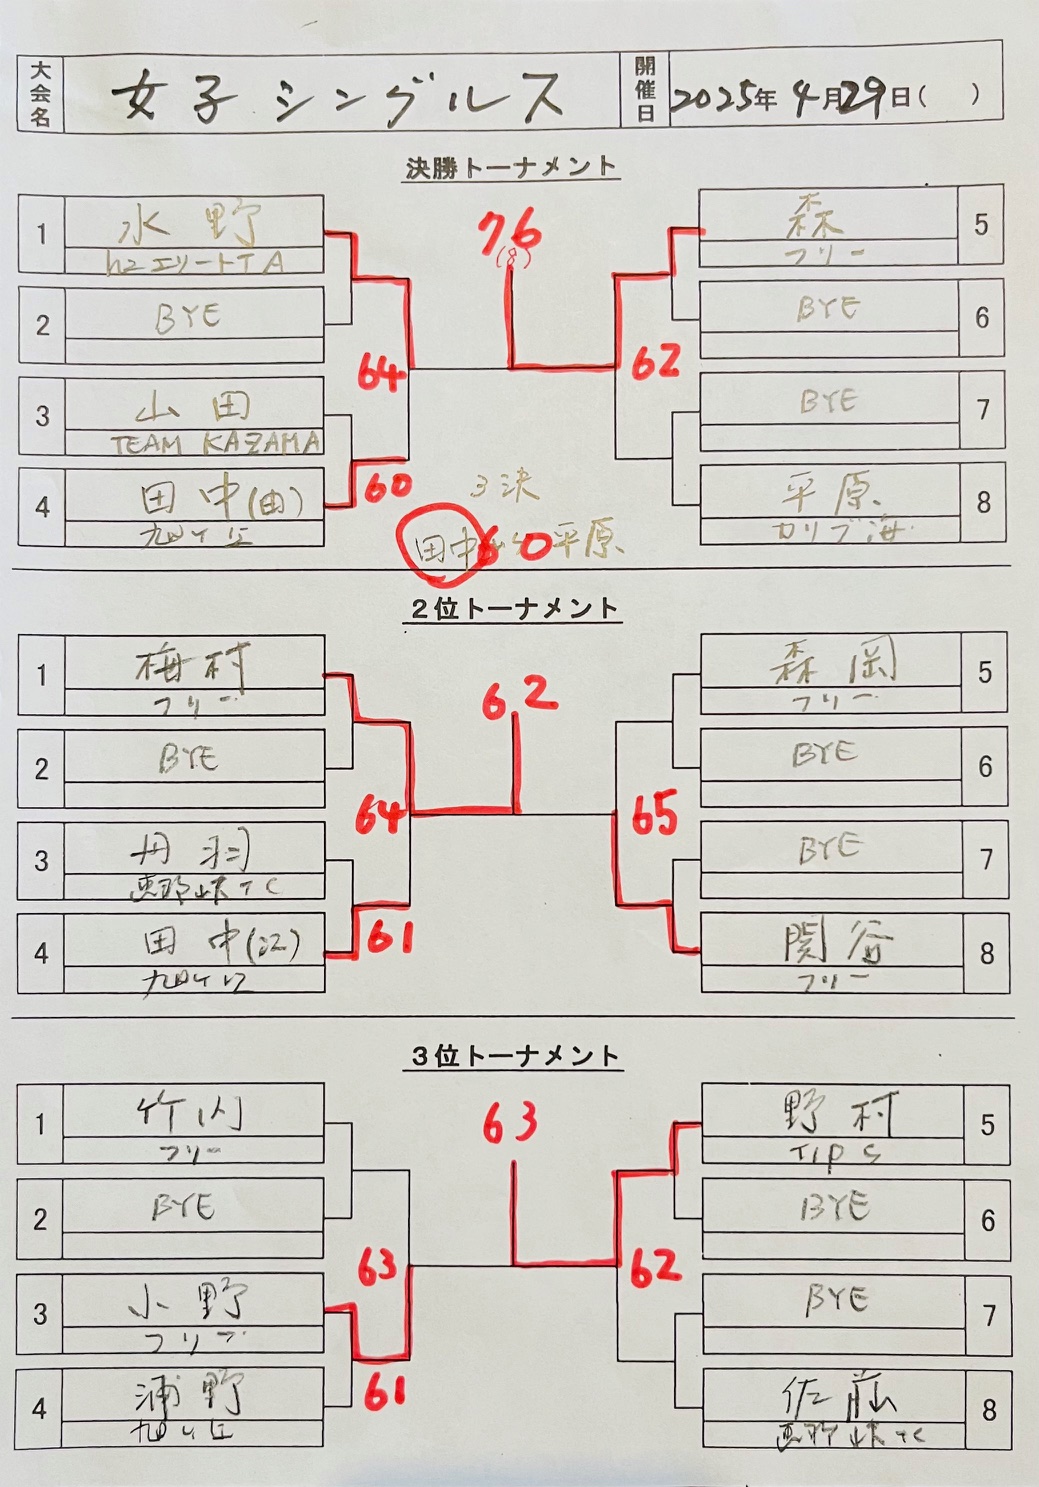 大会名 女子シングルス 開催日 2025年4月29日( )
決勝トーナメント
1 水野
h2エリートTA
2 BYE
3 山田
TEAM KAZAMA
4 田中(由)
76
(8)
64
60
62
5 森
フリー
6 BYE
7 BYE
8 平原
カリブ海
3決
田中 60 平原
2位トーナメント
1 梅村
フリー
2 BYE
3 丹羽
恵那峡TC
4 田中(江)
62
64
61
65
5 森岡
フリー
6 BYE
7 BYE
8 関谷
フリー
3位トーナメント
1 竹内
フリー
2 BYE
3 小野
フリー
4 浦野
63
63
61
62
5 野村
TIPS
6 BYE
7 BYE
8 佐藤
恵那峡TC